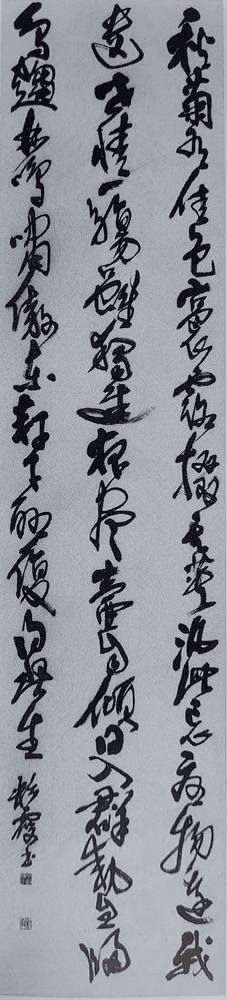 秋菊有佳色裛露掇其英汎此忘憂物遠我
遺世情一觴雖獨進杯盡壺自傾日入群動息歸
鳥趨林鳴嘯傲東軒下聊復得此生